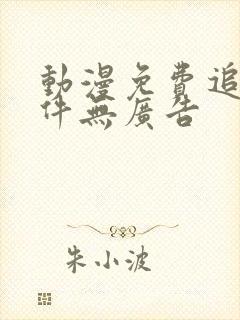 動漫免費追
件無廣告
朱小波